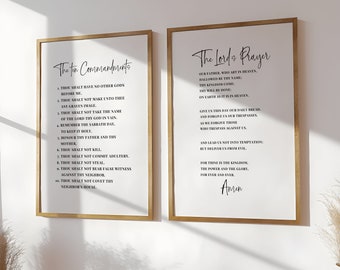 The ten Commandments
1. THOU SHALT HAVE NO OTHER GODS
BEFORE ME.
2. THOU SHALT NOT MAKE UNTO THEE
ANY GRAVEN IMAGE.
3. THOU SHALT NOT TAKE THE NAME
OF THE LORD THY GOD IN VAIN.
4. REMEMBER THE SABBATH DAY,
TO KEEP IT HOLY.
5. HONOUR THY FATHER AND THY
MOTHER.
6. THOU SHALT NOT KILL.
7. THOU SHALT NOT COMMIT ADULTERY.
8. THOU SHALT NOT STEAL.
9. THOU SHALT NOT BEAR FALSE WITNESS
AGAINST THY NEIGHBOR.
10. THOU SHALT NOT COVET THY
NEIGHBOR'S HOUSE.
The Lord's Prayer
OUR FATHER, WHO ART IN HEAVEN,
HALLOWED BE THY NAME;
THY KINGDOM COME;
THY WILL BE DONE;
ON EARTH AS IT IS IN HEAVEN.
GIVE US THIS DAY OUR DAILY BREAD,
AND FORGIVE US OUR TRESPASSES
AS WE FORGIVE THOSE
WHO TRESPASS AGAINST US.
AND LEAD US NOT INTO TEMPTATION;
BUT DELIVER US FROM EVIL.
FOR THINE IS THE KINGDOM,
THE POWER AND THE GLORY,
FOR EVER AND EVER.
Amen